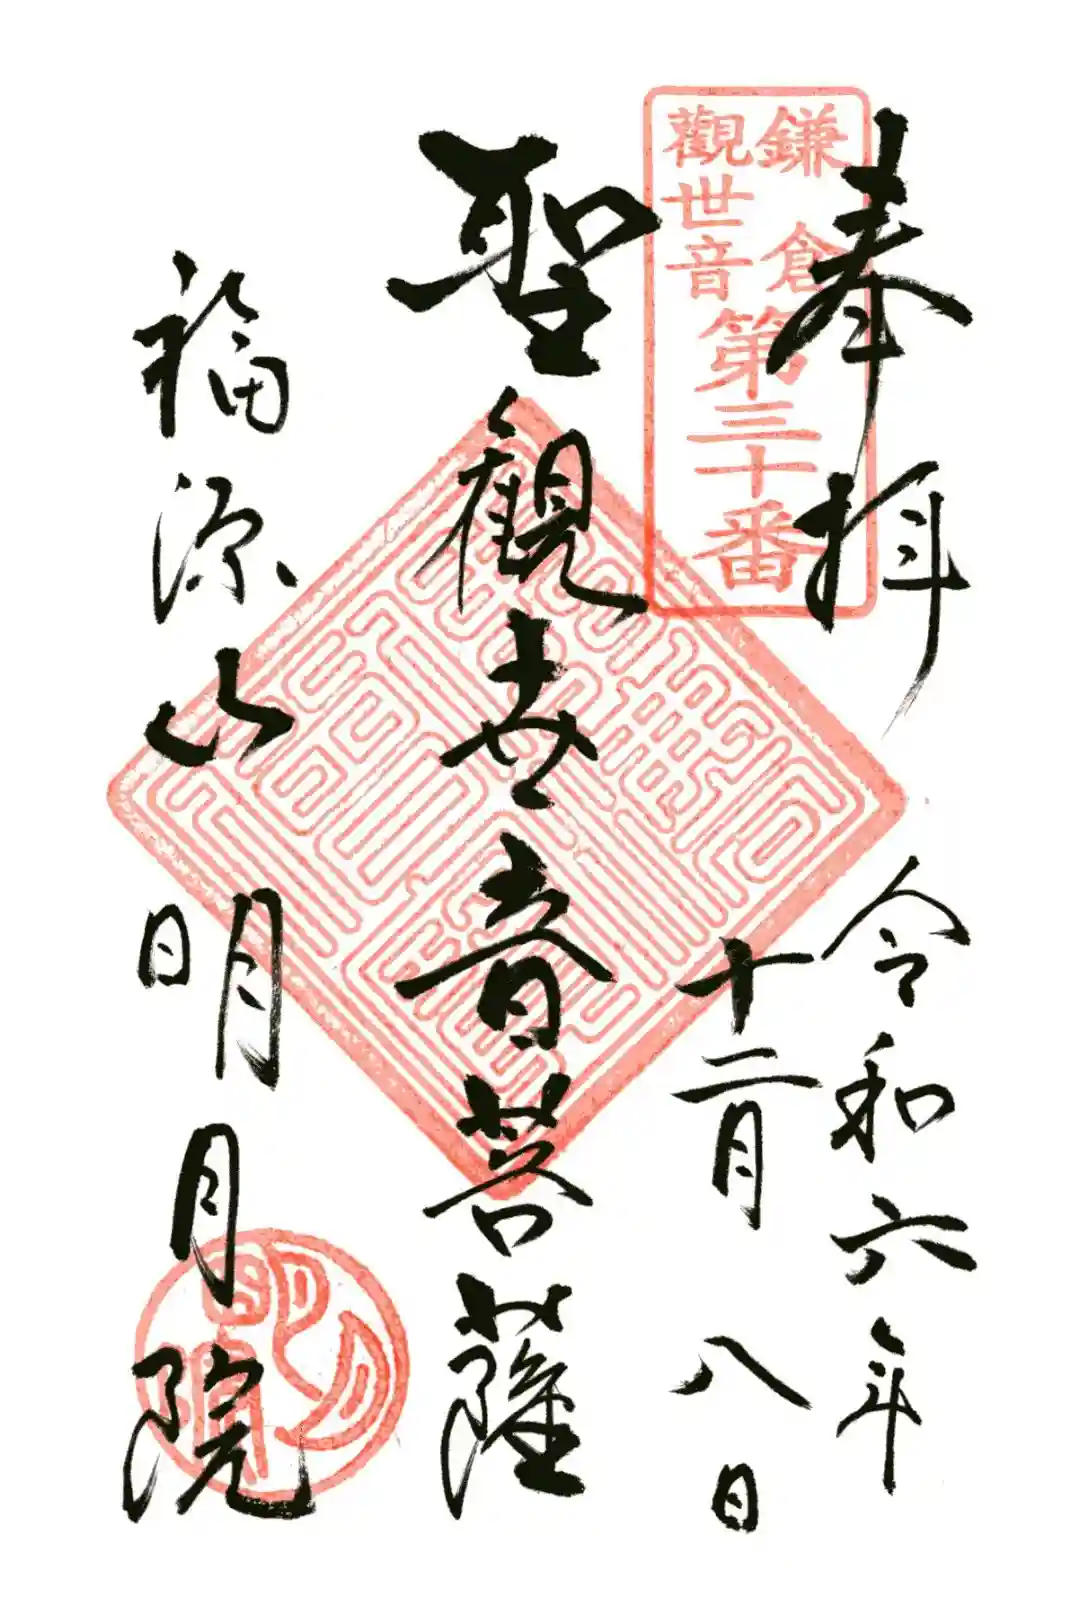 奉拝
鎌倉
觀世音
第三十番
令和六年
十二月八日
聖觀世音菩薩
福源山明月院